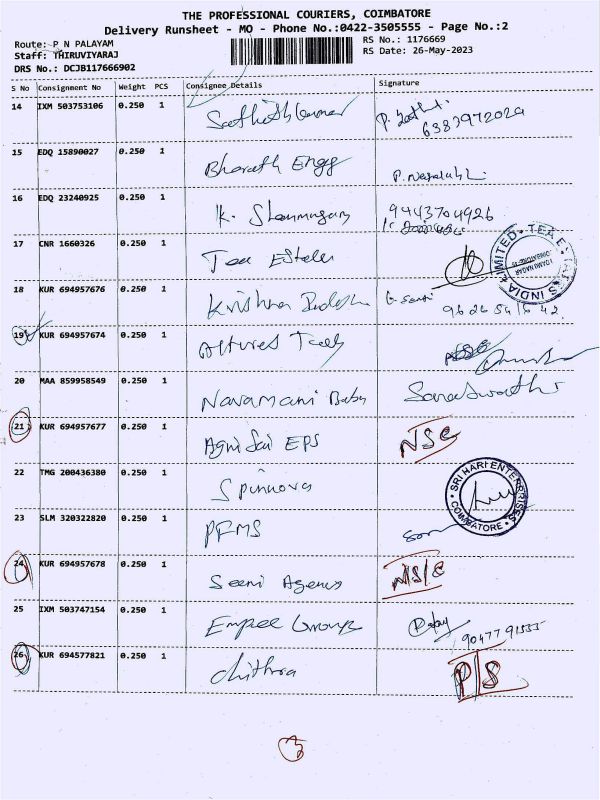 THE PROFESSIONAL COURIERS, COIMBATORE
Delivery Runsheet - MO - Phone No.:0422-3505555 - Page No.:2
Route: P N PALAYAM RS No.: 1176669
Staff: THIRUVIYARAJ RS Date: 26-May-2023
DRS No.: DCJB117666902
S No Consignment No Weight PCS Consignee Details Signature
14 IXM 503753106 0.250 1 Sathishkumar
6383972029
15 EDQ 15890027 0.250 1 Bharath Engg
16 EDQ 23240925 0.250 1 K. Shanmugam 9443704926
17 CNR 1660326 0.250 1 Tea Estate TEA ESTATES INDIA LIMITED
18 KUR 694957676 0.250 1 Krishna
19 KUR 694957674 0.250 1
20 MAA 859958549 0.250 1 Navamani Baby Saraswathi
21 KUR 694957677 0.250 1 Agni Sai EPS NSE
22 TMG 200436380 0.250 1 Spinnova SRI HARI ENTERPRISES COIMBATORE
23 SLM 320322820 0.250 1 PFMS
24 KUR 694957678 0.250 1 Seeni Agency N/S/E
25 IXM 503747154 0.250 1 Empee Group
26 KUR 694577821 0.250 1 Chithra P/S
3